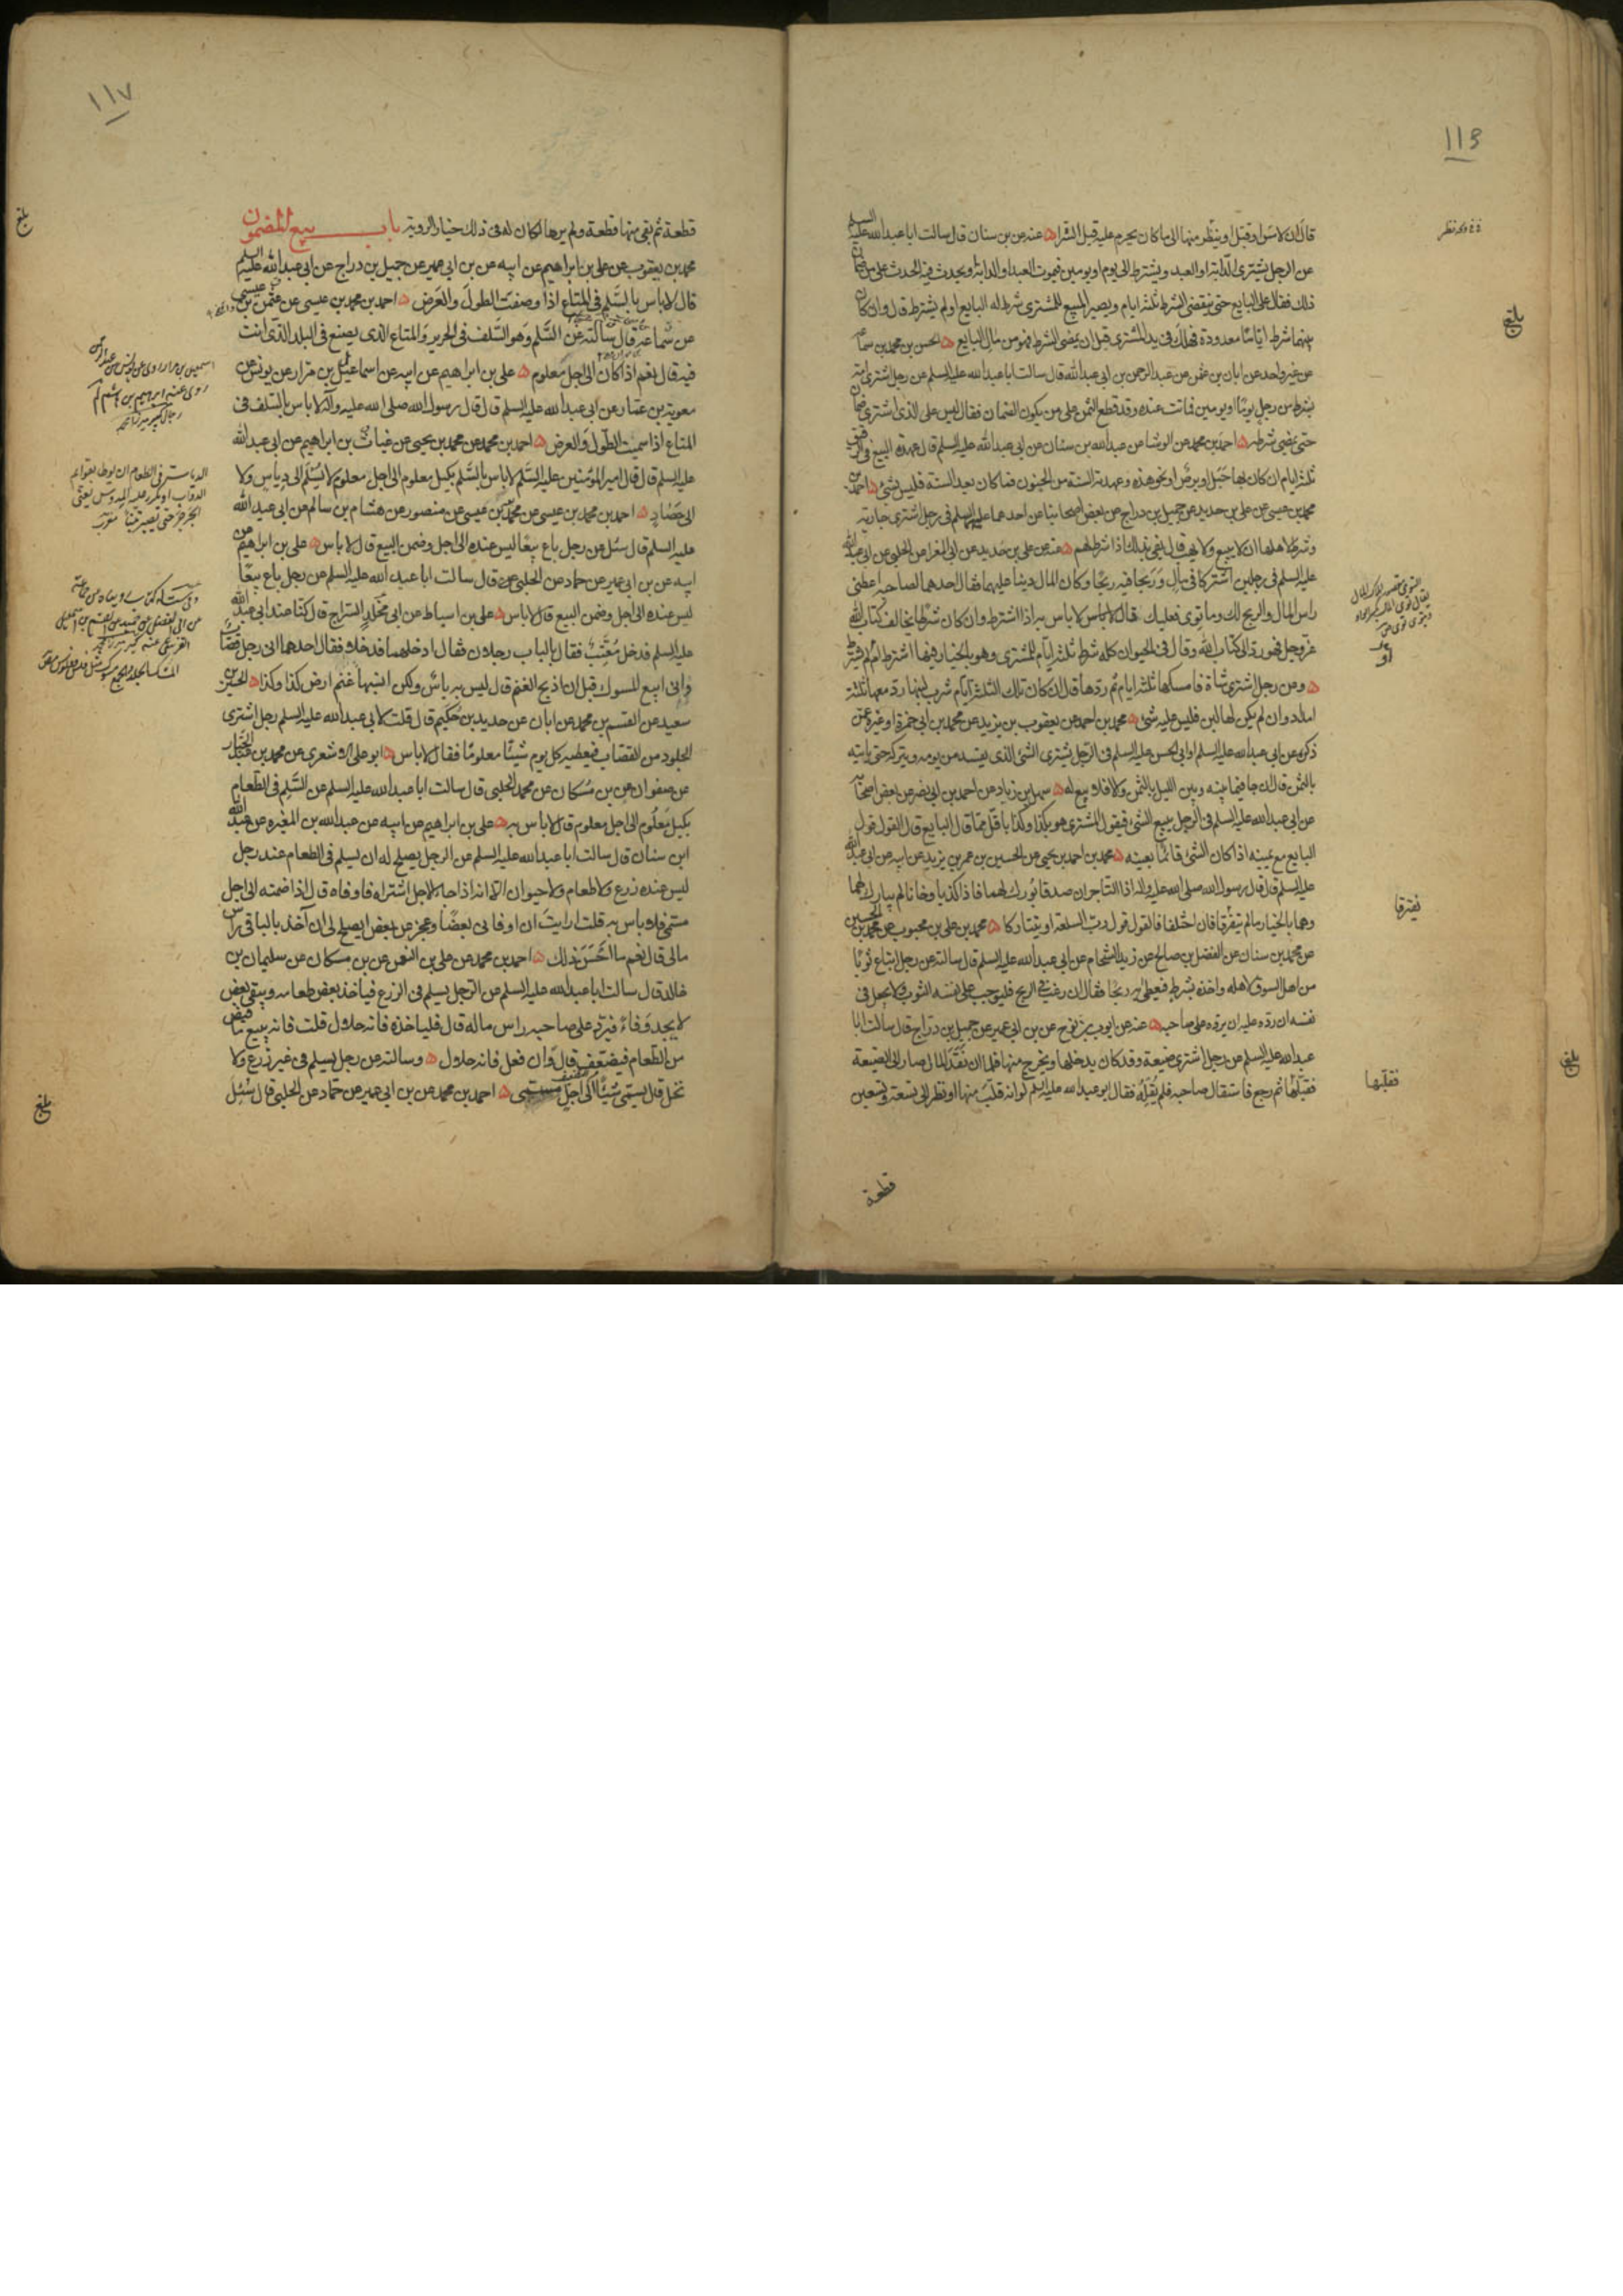 قال ان لامس او قبل او ينظر منها الى ما كان يحرم عليه قبل الشراء ه عنه عن بن سنان قال سالت ابا عبد الله عليه السلم
عن الرجل يشترى الدابة او العبد ويشترط الى يوم او يومين فيموت العبد او الدابة او يحدث فيه الحدث على من ضمان
ذلك فقال على البايع حتى ينقضى الشرط ثلثة ايام ويصير المبيع للمشترى شرط له البايع او لم يشترط قال وان كان
بينهما شرط اياما معدودة فهلك فى يد المشترى قبل ان يمضى الشرط فهو من مال البايع ه الحسن بن محمد بن سماعة
عن غير واحد عن ابان بن عثمن عن عبد الرحمن بن ابى عبد الله قال سالت ابا عبد الله عليه السلم عن رجل اشترى امة
بشرط من رجل يوما او يومين فماتت عنده وقد قطع الثمن على من يكون الضمان فقال ليس على الذى اشترى ضمان
حتى يمضى شرطه ه احمد بن محمد عن الوشا عن عبد الله بن سنان عن ابى عبد الله عليه السلم قال عهدة البيع فى الرقيق
ثلثة ايام ان كان بها حبل او برص او نحو هذه وعهدته السنة من الجنون فما كان بعد السنة فليس بشئ ه احمد بن
محمد بن عيسى عن على بن حديد عن جميل بن دراج عن بعض اصحابنا عن احدهما عليهما السلم فى رجل اشترى جارية
وشرط لاهلها ان لا يبيع ولا يهب قال يفى بذلك اذا شرط لهم ه عنه عن على بن حديد عن ابى المغرا عن الحلبى عن ابى عبد الله
عليه السلم فى رجلين اشتركا فى مال وربحا فيه ربحا وكان المال دينا عليهما فقال احدهما لصاحبه اعطنى
راس المال والربح لك وما توى فعليك فقال لا باس لا باس به اذا اشترط وان كان شرطا يخالف كتاب الله
عز وجل فهو رد الى كتاب الله وقال فى الحيوان كله شرط ثلثة ايام للمشترى وهو بالخيار فيها اشترط ام لم يشترط
ه وعن رجل اشترى شاة فامسكها ثلثة ايام ثم ردها قال ان كان تلك الثلثة ايام شرب لبنها رد معها ثلثة
امداد وان لم يكن لها لبن فليس عليه شئ ه محمد بن احمد عن يعقوب بن يزيد عن محمد بن ابى حمزة او غيره عمن
ذكره عن ابى عبد الله عليه السلم او ابى الحسن عليه السلم فى الرجل يشترى الشئ الذى يفسد من يومه ويتركه حتى ياتيه
بالثمن قال ان جا فيما بينه وبين الليل بالثمن والا فلا بيع له ه سهل بن زياد عن احمد بن ابى نصر عن بعض اصحابه
عن ابى عبد الله عليه السلم فى الرجل يبيع الشئ فيقول المشترى هو بكذا وكذا باقل مما قال البايع قال القول قول
البايع مع يمينه اذا كان الشئ قائما بعينه ه محمد بن احمد بن يحيى عن الحسين بن عمر بن يزيد عن ابيه عن ابى عبد الله
عليه السلم قال قال رسول الله صلى الله عليه واله اذا التاجران صدقا بورك لهما فاذا كذبا وخانا لم يبارك لهما
وهما بالخيار ما لم يتفرقا فان اختلفا فالقول قول رب السلعة او يتتاركا ه محمد بن على بن محبوب عن محمد بن الحسين
عن محمد بن سنان عن الفضل بن صالح عن زيد الشحام عن ابى عبد الله عليه السلم قال سالته عن رجل ابتاع ثوبا
من اهل السوق لاهله واخذه بشرط فيعطى به ربحا فقال ان رغب فى الربح فليوجب على نفسه الثوب ولا يجعل فى
نفسه ان رده عليه ان يرده على صاحبه ه عنه عن ايوب بن نوح عن بن ابى عمير عن جميل بن دراج قال سالت ابا
عبد الله عليه السلم عن رجل اشترى ضيعة وقد كان يدخلها ويخرج منها فلما ان نقد المال صار الى الضيعة
فقلبها ثم رجع فاستقال صاحبه فلم يقله فقال ابو عبد الله عليه السلم لو انه قلب منها او نظر الى تسعة وتسعين
قطعة
يفترقا
فقلبها
بلغ
بلغ
١١٧
قطعة ثم بقى منها قطعة ولم يرها لكان له فى ذلك خيار الروية باب بيع المضمون
محمد بن يعقوب عن على بن ابراهيم عن ابيه عن بن ابى عمير عن جميل بن دراج عن ابى عبد الله عليه السلم
قال لا باس بالسلم فى المتاع اذا وصفت الطول والعرض ه احمد بن محمد بن عيسى عن عثمن بن عيسى
عن سماعة قال سالته عن السلم وهو السلف فى الحرير والمتاع الذى يصنع فى البلد الذى انت
فيه قال نعم اذا كان الى اجل معلوم ه على بن ابراهيم عن ابيه عن اسماعيل بن مرار عن يونس عن
معوية بن عمار عن ابى عبد الله عليه السلم قال قال رسول الله صلى الله عليه وآله لا باس بالسلف فى
المتاع اذا سميت الطول والعرض ه احمد بن محمد عن محمد بن يحيى عن غياث بن ابراهيم عن ابى عبد الله
عليه السلم قال قال امير المؤمنين عليه السلم لا باس بالسلم بكيل معلوم الى اجل معلوم لا يسلم الى دياس ولا
الى حصاد ه احمد بن محمد بن عيسى عن محمد بن عيسى عن منصور عن هشام بن سالم عن ابى عبد الله
عليه السلم قال سئل عن رجل باع بيعا ليس عنده الى اجل وضمن البيع قال لا باس ه على بن ابراهيم عن
ابيه عن بن ابى عمير عن حماد عن الحلبى قال سالت ابا عبد الله عليه السلم عن رجل باع بيعا
ليس عنده الى اجل وضمن البيع قال لا باس ه على بن اسباط عن ابى مخلد السراج قال كنا عند ابى عبد الله
عليه السلم فدخل معتب فقال بالباب رجلان فقال ادخلهما فدخلا فقال احدهما انى رجل قصاب
وانى ابيع المسوك قبل ان اذبح الغنم قال ليس به باس ولكن انسبها غنم ارض كذا وكذا ه الحسين بن
سعيد عن القسم بن محمد عن ابان عن حديد بن حكيم قال قلت لابى عبد الله عليه السلم رجل اشترى
الجلود من القصاب فيعطيه كل يوم شيئا معلوما فقال لا باس ه ابو على الاشعرى عن محمد بن عبد الجبار
عن صفوان عن بن مسكان عن محمد الحلبى قال سالت ابا عبد الله عليه السلم عن السلم فى الطعام
بكيل معلوم الى اجل معلوم قال لا باس به ه على بن ابراهيم عن ابيه عن عبد الله بن المغيره عن عبد الله
ابن سنان قال سالت ابا عبد الله عليه السلم عن الرجل يصلح له ان يسلم فى الطعام عند رجل
ليس عنده زرع ولا طعام ولا حيوان الا انه اذا جاء الاجل اشتراه فاوفاه قال اذا ضمنه الى اجل
مسمى فلا باس به قلت ارايت ان اوفانى بعضا وعجز عن بعض ايصلح لى ان آخذ بالباقى راس
مالى قال نعم ما احسن ذلك ه احمد بن محمد عن على بن النعمن عن بن مسكان عن سليمان بن
خالد قال سالت ابا عبد الله عليه السلم عن الرجل يسلم فى الزرع فياخذ بعض طعامه ويبقى بعض
لا يجد وفاء فيرد على صاحبه راس ماله قال فلياخذه فانه حلال قلت فانه يبيع ما قبض
من الطعام فيضعف قال وان فعل فانه حلال ه وسالته عن رجل يسلم فى غير زرع ولا
نخل قال يسمى شيئا الى اجل مسمى ه احمد بن محمد عن بن ابى عمير عن حماد عن الحلبى قال سئل
بلغ
بلغ